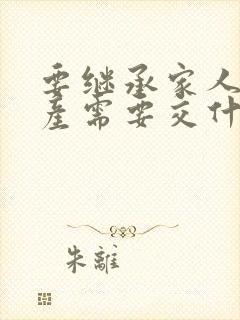 要继承家人
产需要交什
朱離